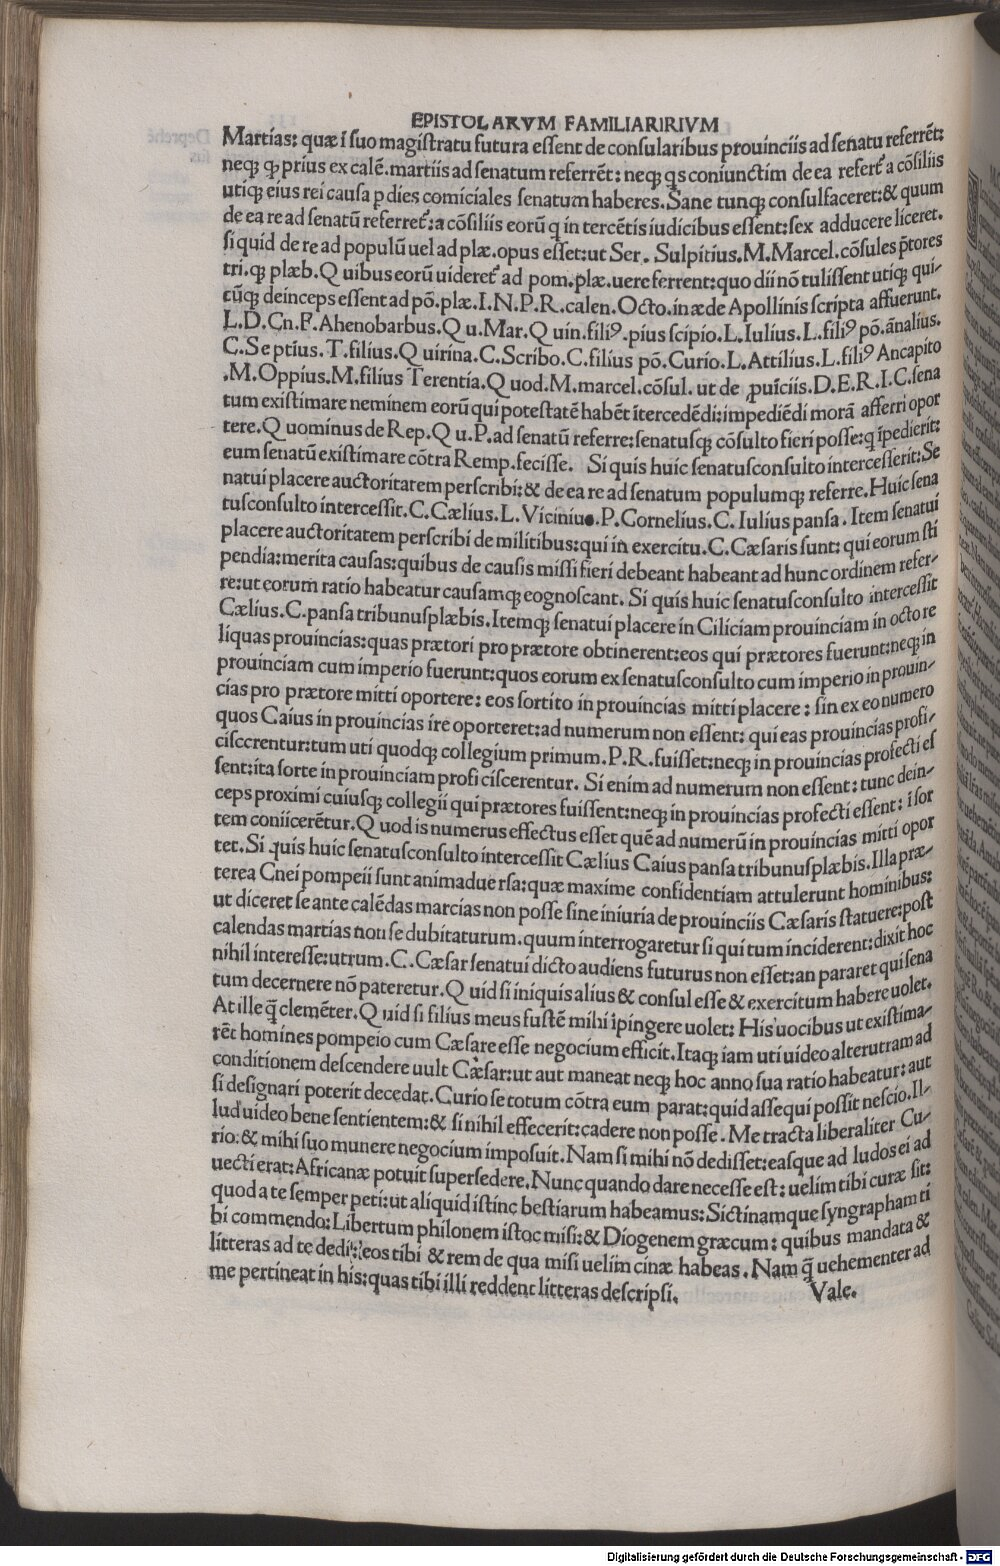 EPISTOLARVM FAMILIARIRIVM
Martias: quæ ī suo magistratu futura essent de consularibus prouinciis ad senatu referrēt:
neq; qp prius ex calē. martiis ad senatum referrēt: neq; qs coniunctim de ea refert᷑ a cōsiliis
utiq; eius rei causa p dies comiciales senatum haberes. Sane tunq; consulfaceret: & quum
de ea re ad senatū referret᷑: a cōsiliis eorū q in tercētis iudicibus essent: sex adducere liceret.
si quid de re ad populū uel ad plæ. opus esset: ut Ser. Sulpitius. M. Marcel. cōsules p̄tores
tri. q; plæb. Quibus eorū uideret᷑ ad pom. plæ. uere ferrent: quo dii nō tulissent utiq; qui-
cūq; deinceps essent ad pō. plæ. I. N. P. R. calen. Octo. in æde Apollinis scripta affuerunt.
L. D. Cn. F. Ahenobarbus. Qu. Mar. Quin. filiꝰ. pius scipio. L. Iulius. L. filiꝰ pō. ānalius.
C. Septius. T. filius. Quirina. C. Scribo. C. filius pō. Curio. L. Attilius. L. filiꝰ Ancapito
. M. Oppius. M. filius Terentia. Quod. M. marcel. cōsul. ut de ꝓuīciis. D. E. R. I. C. sena
tum existimare neminem eorū qui potestatē habēt ītercedēdi: impediēdi morā afferri opor
tere. Quominus de Rep. Qu. P. ad senatū referre: senatusq; cōsulto fieri posse: q īpedierit:
eum senatū existimare cōtra Remp. fecisse. Si quis huic senatusconsulto intercesserit: Se
natui placere auctoritatem perscribi: & de ea re ad senatum populumq; referre. Huic sena
tusconsulto intercessit. C. Cælius. L. Vicinius. P. Cornelius. C. Iulius pansa. Item senatui
placere auctoritatem perscribi de militibus: qui in exercitu. C. Cæsaris sunt: qui eorum sti
pendia: merita causas: quibus de causis missi fieri debeant habeant ad hunc ordinem refer-
re: ut eorum ratio habeatur causamq; eognoscant. Si quis huic senatusconsulto intercessit
Cælius. C. pansa tribunus plæbis. Itemq; senatui placere in Ciliciam prouinciam in octo re
liquas prouincias: quas prætori pro prætore obtinerent: eos qui prætores fuerunt: neq; in
prouinciam cum imperio fuerunt: quos eorum ex senatusconsulto cum imperio in prouin-
cias pro prætore mitti oportere: eos sortito in prouincias mitti placere: sin ex eo numero
quos Caius in prouincias ire oporteret: ad numerum non essent: qui eas prouincias profi-
cisccrentur: tum uti quodq; collegium primum. P. R. fuisset: neq; in prouincias profecti es
sent: ita sorte in prouinciam profi ciscerentur. Si enim ad numerum non essent: tunc dein-
ceps proximi cuiusq; collegii qui prætores fuissent: neq; in prouincias profecti essent: ī sor
tem coniicerētur. Quod is numerus effectus esset quē ad numerū in prouincias mitti opor
tet. Si quis huic senatusconsulto intercessit Cælius Caius pansa tribunus plæbis. Illa præ-
terea Cnei pompeii sunt animaduersa: quæ maxime confidentiam attulerunt hominibus:
ut diceret se ante calēdas marcias non posse sine iniuria de prouinciis Cæsaris statuere: post
calendas martias non se dubitaturum. quum interrogaretur si qui tum inciderent: dixit hoc
nihil interesse: utrum. C. Cæsar senatui dicto audiens futurus non esset: an pararet qui sena
tum decernere nō pateretur. Quid si iniquis alius & consul esse & exercitum habere uolet.
At ille q̄ clemēter. Quid si filius meus fustē mihi īpingere uolet: His uocibus ut existima-
rēt homines pompeio cum Cæsare esse negocium efficit. Itaq; iam uti uideo alterutram ad
conditionem descendere uult Cæsar: ut aut maneat neq; hoc anno sua ratio habeatur: aut
si designari poterit decedat. Curio se totum cōtra eum parat: quid assequi possit nescio. Il-
lud uideo bene sentientem: & si nihil effecerit: cadere non posse. Me tracta liberaliter Cu-
rio: & mihi suo munere negocium imposuit. Nam si mihi nō dedisset: easque ad ludos ei ad
uecti erat: Africanæ potuit supersedere. Nunc quando dare necesse est: uelim tibi curæ sit:
quod a te semper peti: ut aliquid istinc bestiarum habeamus: Sictinamque syngrapham ti
bi commendo: Libertum philonem istoc misi: & Diogenem græcum: quibus mandata &
litteras ad te dedi: eos tibi & rem de qua misi uelim cinæ habeas. Nam q̄ uehementer ad
me pertineat in his: quas tibi illi reddent litteras descripsi. Vale.
Digitalisierung gefördert durch die Deutsche Forschungsgemeinschaft - DFG